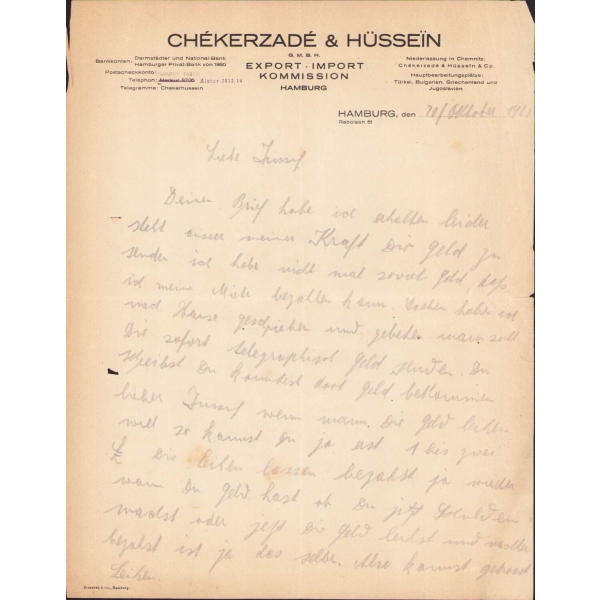 CHÉKERZADÉ & HÜSSEÏN
G. M. B. H.
EXPORT - IMPORT
KOMMISSION
HAMBURG
Bankkonten: Darmstädter und National-Bank
Hamburger Privat-Bank von 1860
Postscheckkonto:
Telephon: Merkur 5706 Alster 2813.14
Telegramme: Chekerhussein
Niederlassung in Chemnitz:
Chékerzadé & Hüssein & Co.
Hauptbearbeitungsplätze:
Türkei, Bulgarien, Griechenland und
Jugoslavien.
HAMBURG, den Oktober
Raboisen 5I
Liebe Jussuf
Deinen Brief habe ich erhalten leider
steht ausser meiner Kraft Dir Geld zu
senden ich habe nicht mal soviel Geld, daß
ich meine Miete bezahlen kann. Soeben habe ich
nach Hause geschrieben und gebeten man soll
Die sofort telegraphisch Geld senden. Du
schreibst Du konntest dort Geld bekommen
lieber Jussuf wenn mann Die Geld leihen
will so kannst Du ja erst 1 bis zwei
£ Die leihen lassen bezahlst ja wieder
wann Du Geld hast ob Du jetzt Schulden
machst oder jetzt Die Geld leihst und
bezahlst ist ja das selbe. Also kannst getrost
Leihen.